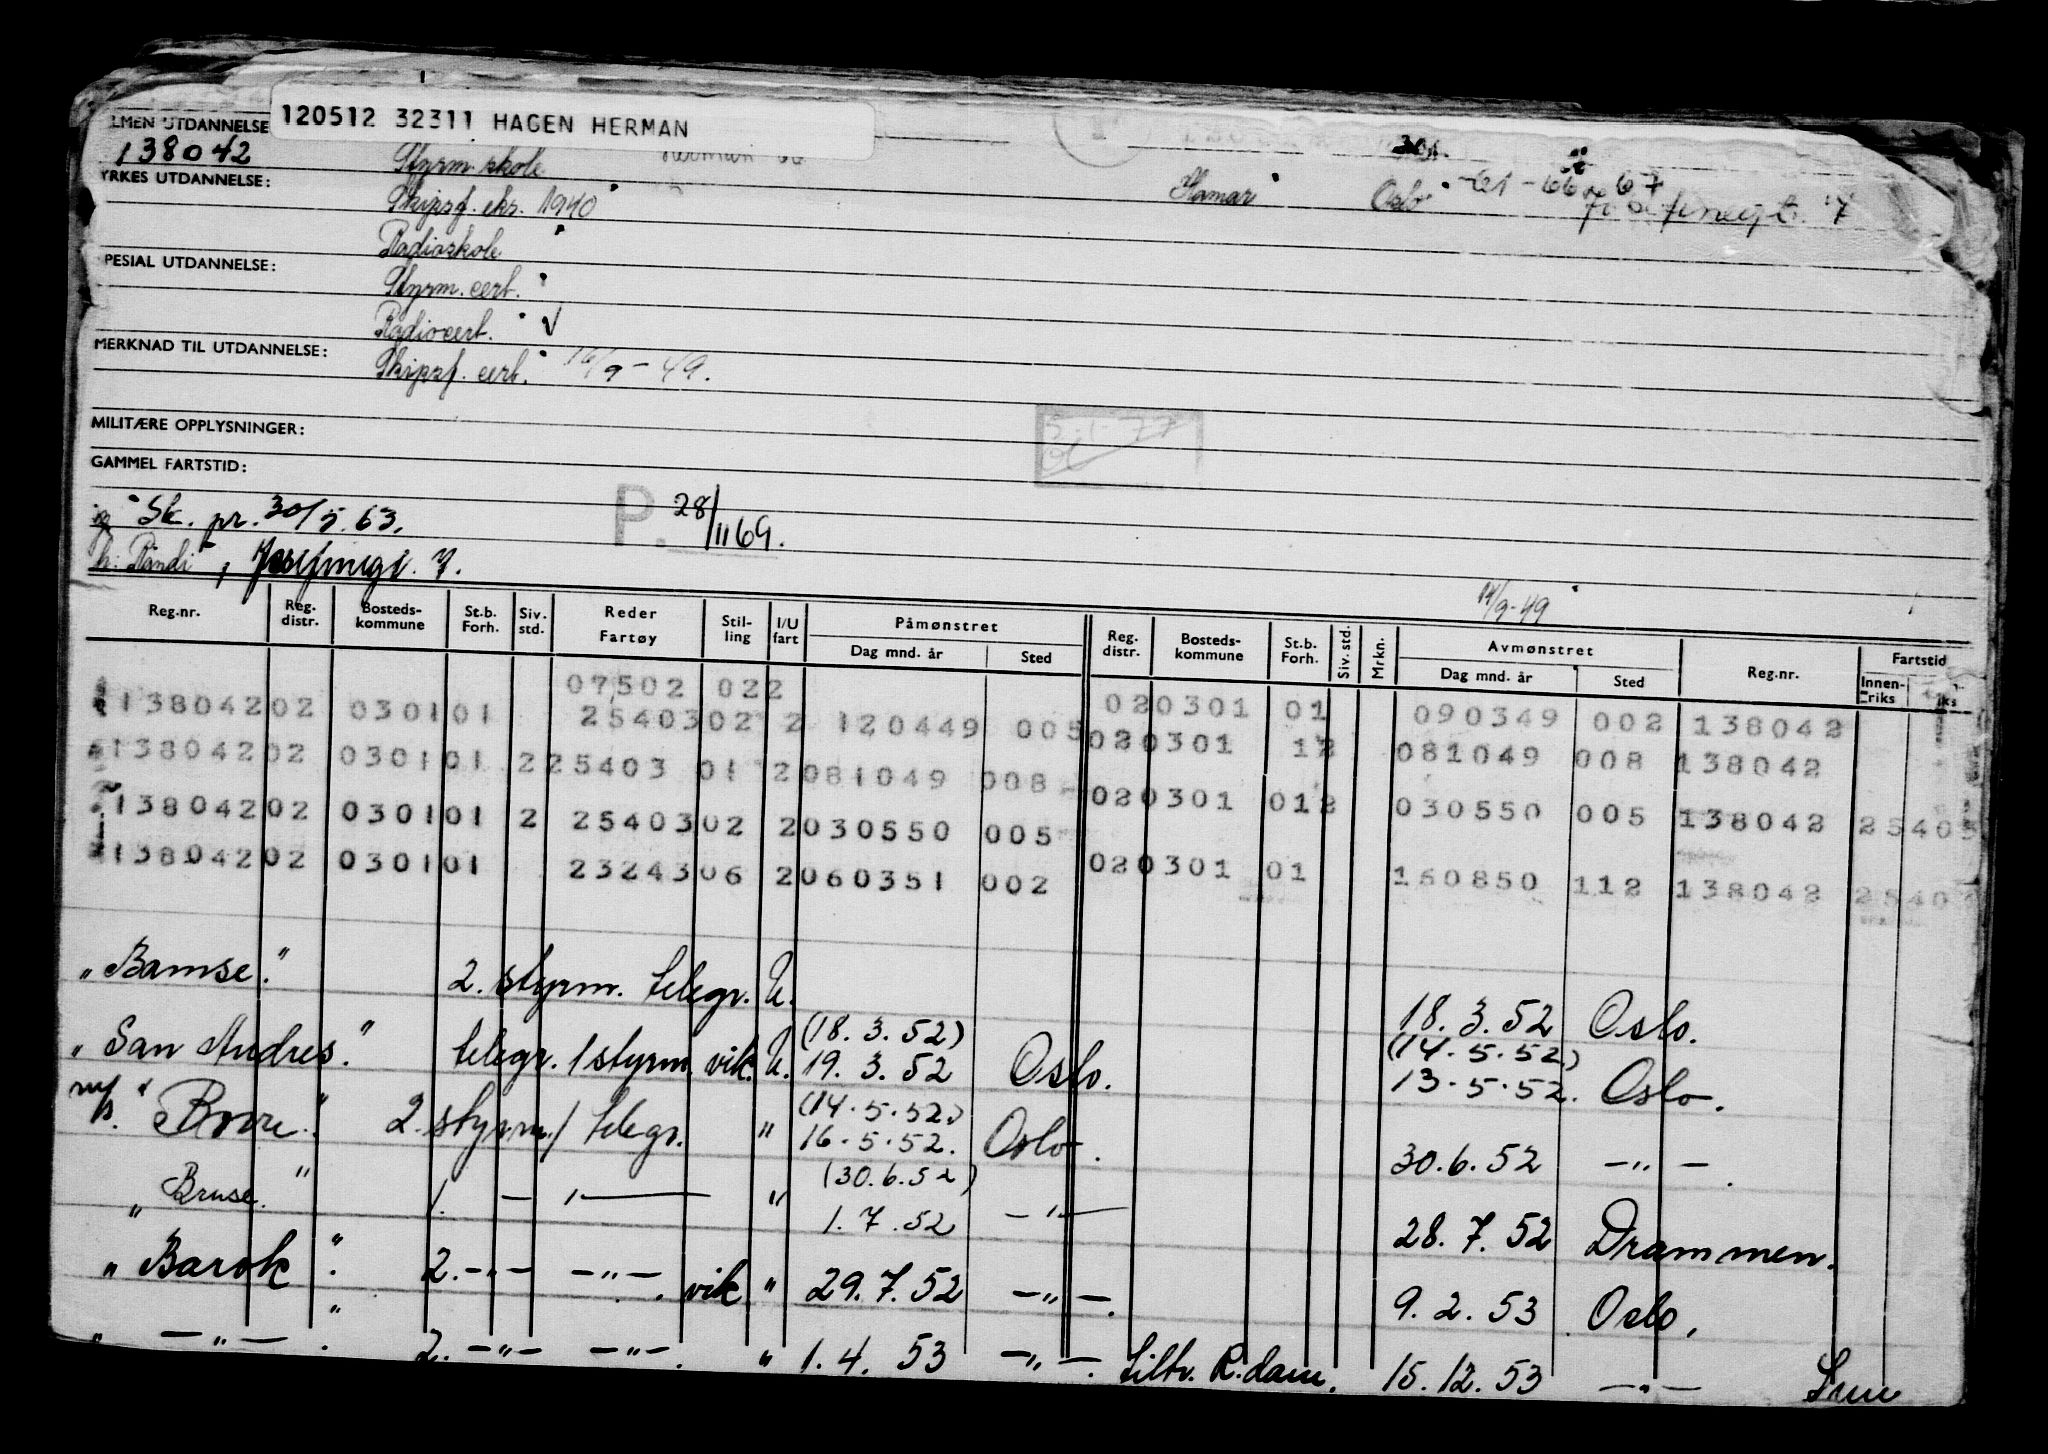 120512 32311 HAGEN HERMAN
LMEN UTDANNELSE
138042 Styrm. skole
YRKES UTDANNELSE: Skipsf. eks. 1940 Hamar Oslo -61-66 67
Radioskole
PESIAL UTDANNELSE: Styrm. cert.
Radiocert. √
MERKNAD TIL UTDANNELSE: Skipsf. cert. 16/9-49.
MILITÆRE OPPLYSNINGER:
GAMMEL FARTSTID:
Sk. pr. 30/5.63. P. 28/11 69.
14/9-49
Reg.nr. Reg. distr. Bosteds-kommune St.b. Forh. Siv. std. Reder Fartøy Stil-ling I/U fart Påmønstret Dag mnd. år Sted Reg. distr. Bosteds-kommune St.b. Forh. Siv. std. Mrkn. Avmønstret Dag mnd. år Sted Reg.nr. Fartstid Innen-riks
07502 022
138042 02 0301 01 25403 02 2 120449 005 02 0301 01 090349 002 138042
138042 02 0301 01 2 25403 01 2 081049 008 02 0301 12 081049 008 138042
138042 02 0301 01 2 25403 02 2 030550 005 02 0301 012 030550 005 138042 25403
138042 02 0301 01 23243 06 2 060351 002 02 0301 01 160850 112 138042 2540
"Bamse." 2. styrm. telegr. U. 18.3.52 Oslo.
"San Andres." telegr. 1 styrm. vik. U. (18.3.52) 19.3.52 Oslo. (14.5.52) 13.5.52. Oslo.
m/s. "Borre." 2. styrm./telegr. " (14.5.52.) 16.5.52. Oslo. 30.6.52 — " —.
"Bruse." 1. — " — " (30.6.52) 1.7.52 — " — 28.7.52 Drammen.
"Barok". 2. — " — — " —. vik " 29.7.52 — " —. 9.2.53 Oslo.
" — " — ". 2. — " — — " —. " 1.4.53 — " —. tiltr. R.dam. 15.12.53 — " —